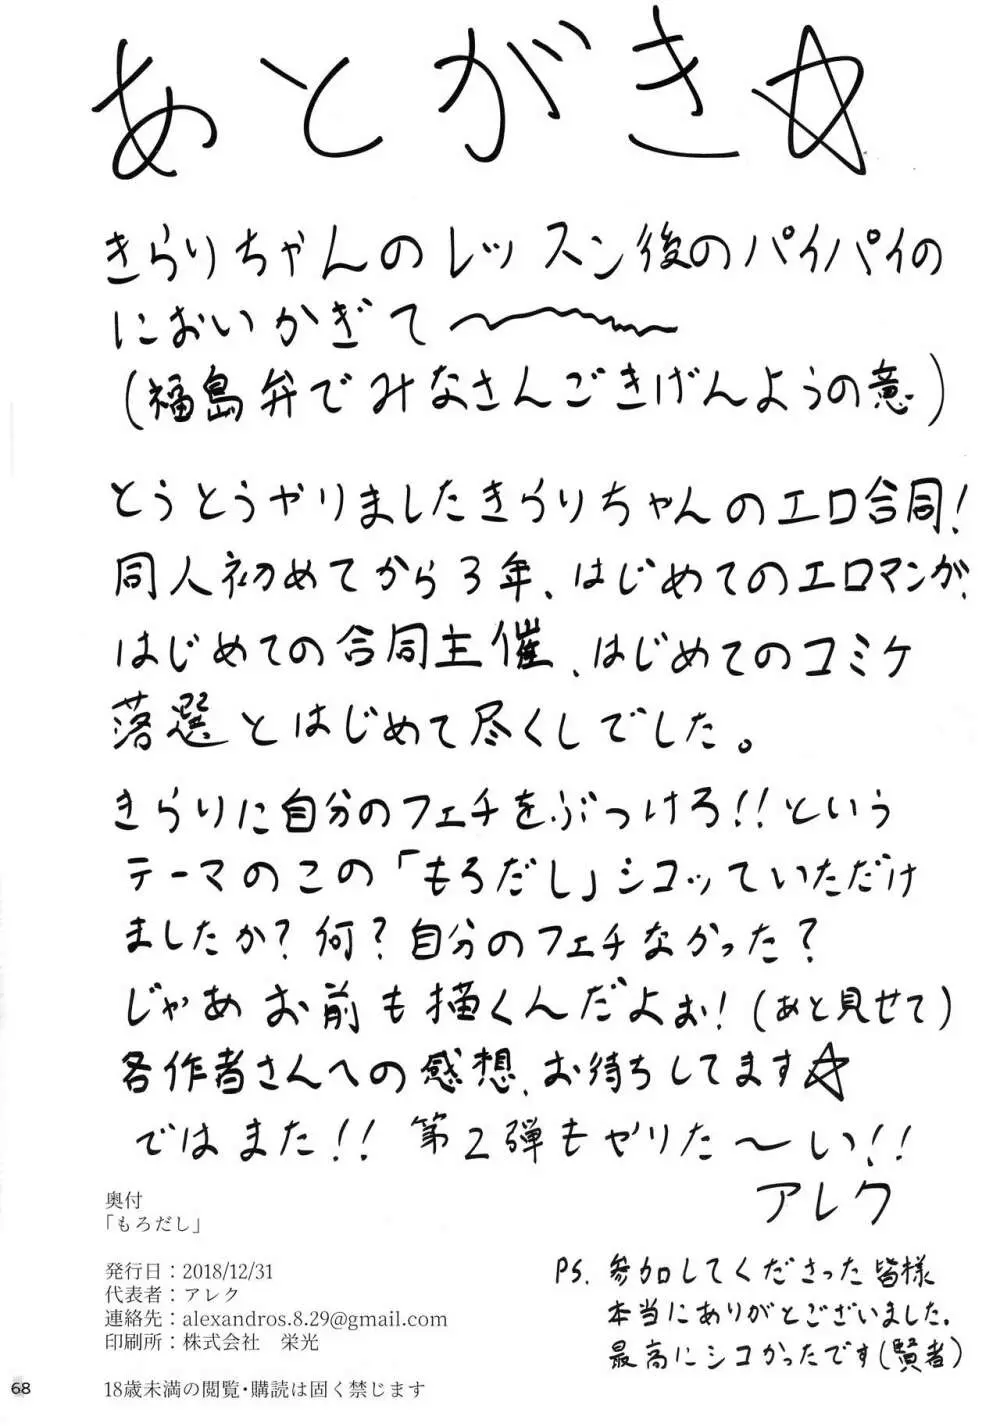 あとがき☆
きらりちゃんのレッスン後のパイパイの
においかぎて〜
(福島弁でみなさんごきげんようの意)
とうとうやりましたきらりちゃんのエロ合同!
同人初めてから3年、はじめてのエロマンガ、
はじめての合同主催、はじめてのコミケ
落選とはじめて尽くしでした。
きらりに自分のフェチをぶつけろ!!という
テーマのこの「もろだし」シコッていただけ
ましたか?何?自分のフェチなかった?
じゃあお前も描くんだよぉ!(あと見せて)
各作者さんへの感想、お待ちしてます☆
ではまた!!第2弾もやりた〜い!!
アレク
PS. 参加してくださった皆様
本当にありがとございました。
最高にシコかったです(賢者)
奥付
「もろだし」
発行日：2018/12/31
代表者：アレク
連絡先：alexandros.8.29@gmail.com
印刷所：株式会社　栄光
68
18歳未満の閲覧・購読は固く禁じます